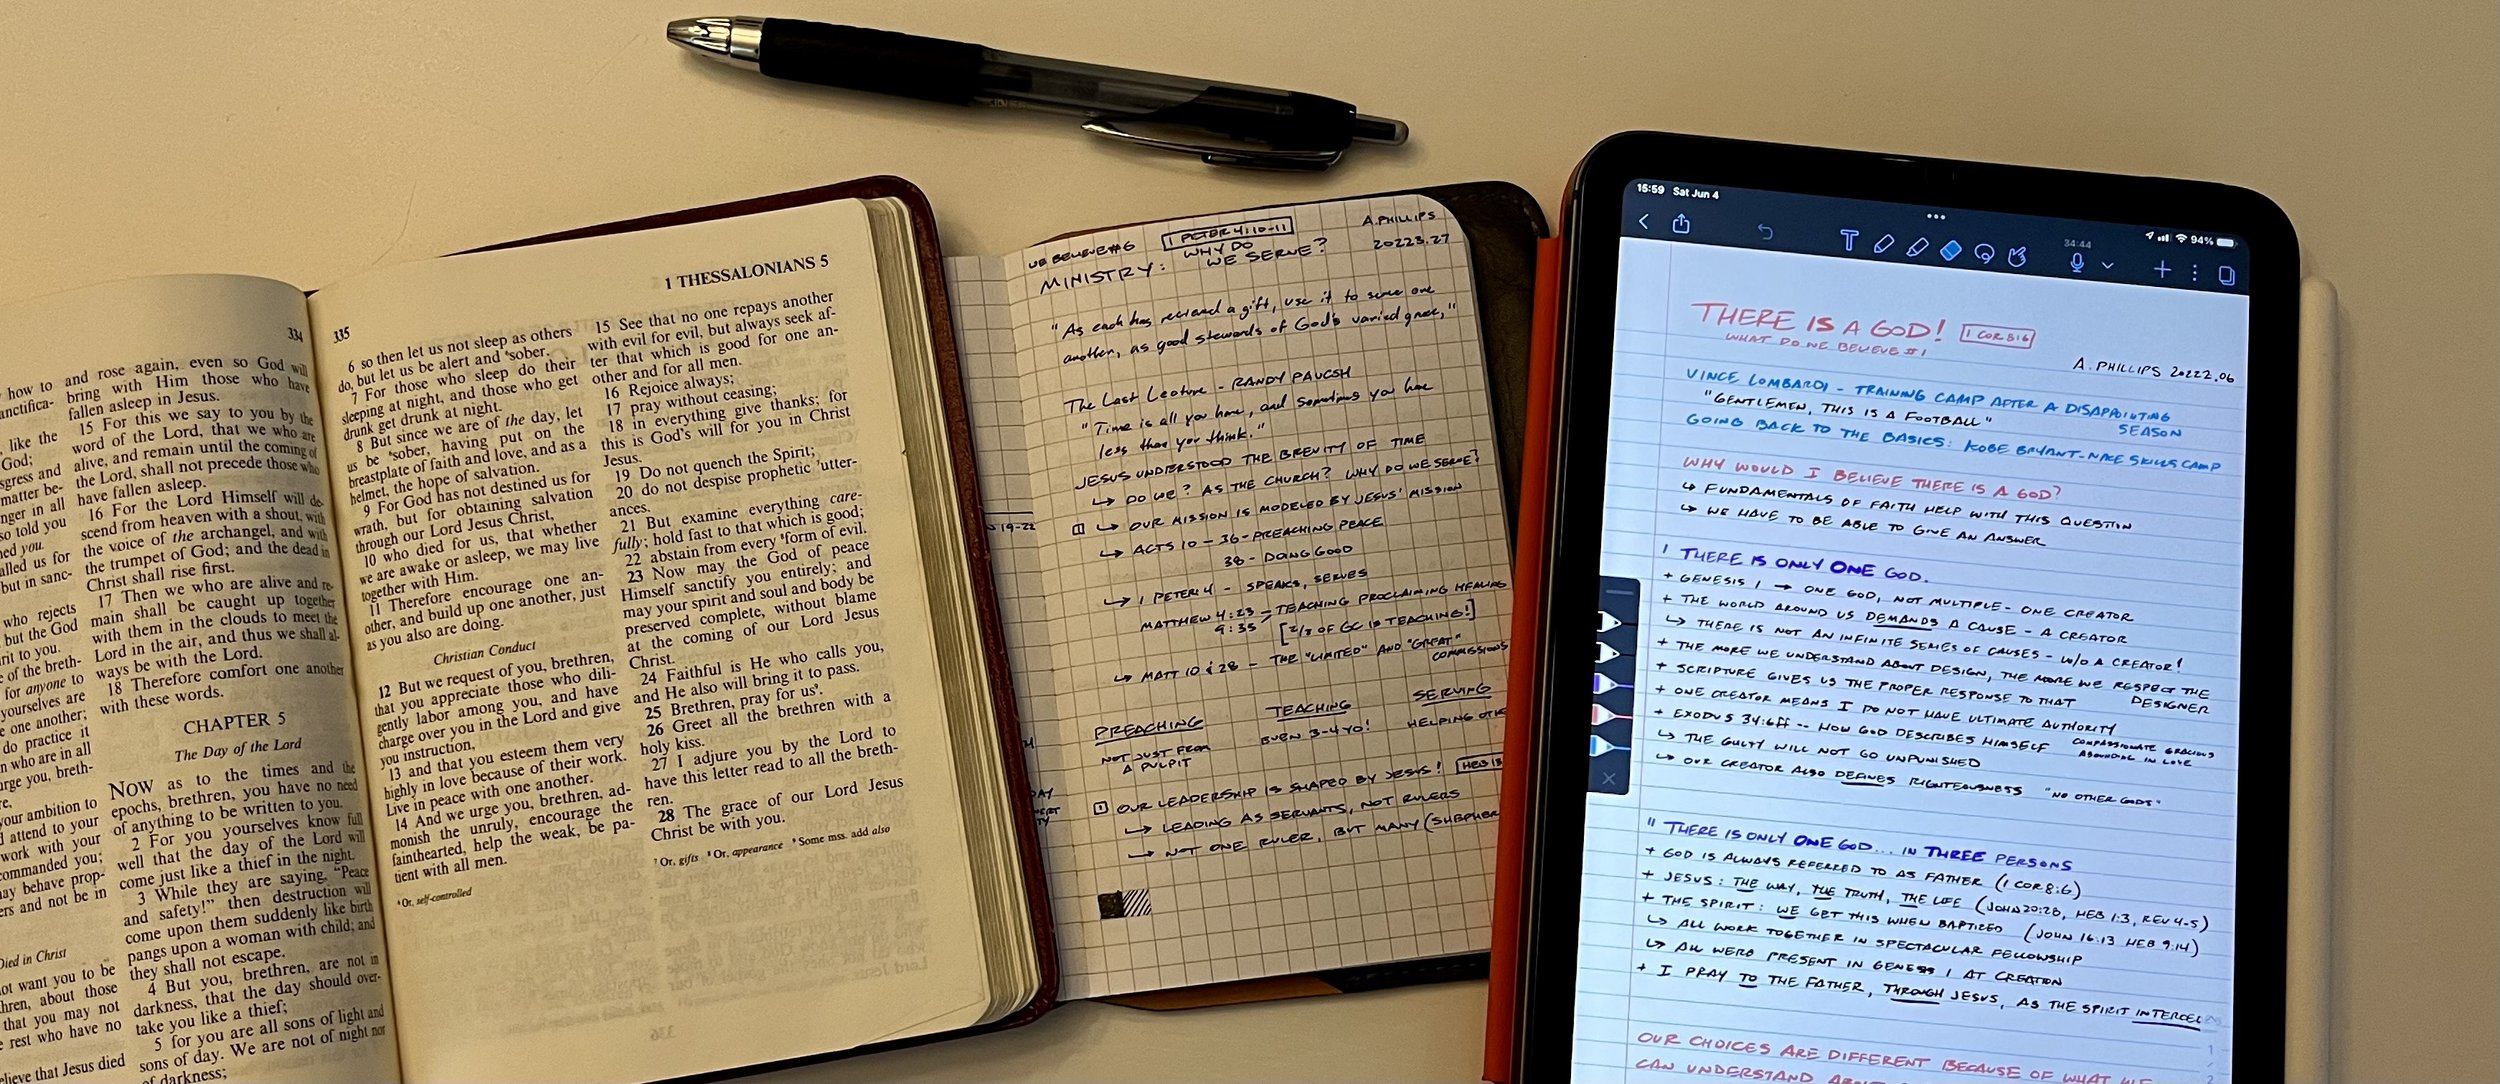 334
how to
anctifica-
like the
God;
sgress and
matter be-
nger in all
so told you
ned you.
alled us for
but in sanc-
who rejects
but the God
rit to you.
of the breth-
for anyone to
yourselves are
e one another;
do practice it
n who are in all
urge you, breth-
re,
your ambition to
d attend to your
work with your
commanded you;
may behave prop-
ers and not be in
Died in Christ
not want you to be
thren, about those
that you may not
e rest who have no
elieve that Jesus died
and rose again, even so God will
bring with Him those who have
fallen asleep in Jesus.
15 For this we say to you by the
word of the Lord, that we who are
alive, and remain until the coming of
the Lord, shall not precede those who
have fallen asleep.
16 For the Lord Himself will de-
scend from heaven with a shout, with
the voice of the archangel, and with
the trumpet of God; and the dead in
Christ shall rise first.
17 Then we who are alive and re-
main shall be caught up together
with them in the clouds to meet the
Lord in the air, and thus we shall al-
ways be with the Lord.
18 Therefore comfort one another
with these words.
CHAPTER 5
The Day of the Lord
NOW as to the times and the
epochs, brethren, you have no need
of anything to be written to you.
2 For you yourselves know full
well that the day of the Lord will
come just like a thief in the night.
3 While they are saying, "Peace
and safety!" then destruction will
come upon them suddenly like birth
pangs upon a woman with child; and
they shall not escape.
4 But you, brethren, are not in
darkness, that the day should over-
take you like a thief;
5 for you are all sons of light and
sons of day. We are not of night nor
of darkness;
335
1 THESSALONIANS 5
6 so then let us not sleep as others
do, but let us be alert and ⁶sober.
7 For those who sleep do their
sleeping at night, and those who get
drunk get drunk at night.
8 But since we are of the day, let
us be ⁶sober, having put on the
breastplate of faith and love, and as a
helmet, the hope of salvation.
9 For God has not destined us for
wrath, but for obtaining salvation
through our Lord Jesus Christ,
10 who died for us, that whether
we are awake or asleep, we may live
together with Him.
11 Therefore encourage one an-
other, and build up one another, just
as you also are doing.
Christian Conduct
12 But we request of you, brethren,
that you appreciate those who dili-
gently labor among you, and have
charge over you in the Lord and give
you instruction,
13 and that you esteem them very
highly in love because of their work.
Live in peace with one another.
14 And we urge you, brethren, ad-
monish the unruly, encourage the
fainthearted, help the weak, be pa-
tient with all men.
⁶ Or, self-controlled
15 See that no one repays another
with evil for evil, but always seek af-
ter that which is good for one an-
other and for all men.
16 Rejoice always;
17 pray without ceasing;
18 in everything give thanks; for
this is God's will for you in Christ
Jesus.
19 Do not quench the Spirit;
20 do not despise prophetic ⁷utter-
ances.
21 But examine everything care-
fully; hold fast to that which is good;
22 abstain from every ⁸form of evil.
23 Now may the God of peace
Himself sanctify you entirely; and
may your spirit and soul and body be
preserved complete, without blame
at the coming of our Lord Jesus
Christ.
24 Faithful is He who calls you,
and He also will bring it to pass.
25 Brethren, pray for us⁹.
26 Greet all the brethren with a
holy kiss.
27 I adjure you by the Lord to
have this letter read to all the breth-
ren.
28 The grace of our Lord Jesus
Christ be with you.
⁷ Or, gifts ⁸ Or, appearance ⁹ Some mss. add also
336
19-22
WE BELIEVE #6
1 PETER 4:10-11
A. PHILLIPS
20223.27
MINISTRY: WHY DO
WE SERVE?
"As each has received a gift, use it to serve one
another, as good stewards of God's varied grace,"
The Last Lecture - RANDY PAUCSH
"Time is all you have, and sometimes you have
less than you think."
JESUS UNDERSTOOD THE BREVITY OF TIME
↳ DO WE? AS THE CHURCH? WHY DO WE SERVE?
↳ OUR MISSION IS MODELED BY JESUS' MISSION
↳ ACTS 10 - 36 - PREACHING PEACE
38 - DOING GOOD
↳ 1 PETER 4 - SPEAKS, SERVES
MATTHEW 4:23 - TEACHING PROCLAIMING HEALING
9:35 [2/3 OF GC IS TEACHING!]
↳ MATT 10 & 28 - THE "LIMITED" AND "GREAT"
COMMISSIONS
PREACHING TEACHING SERVING
NOT JUST FROM
A PULPIT
EVEN 3-4 YO!
HELPING OTHE
OUR LEADERSHIP IS SHAPED BY JESUS! HEB 13
↳ LEADING AS SERVANTS, NOT RULERS
↳ NOT ONE RULER, BUT MANY (SHEPHER
15:59 Sat Jun 4
94%
34:44
THERE IS A GOD! 1 COR 8:6
WHAT DO WE BELIEVE #1
A. PHILLIPS 20222.06
VINCE LOMBARDI - TRAINING CAMP AFTER A DISAPPOINTING
SEASON
"GENTLEMEN, THIS IS A FOOTBALL"
GOING BACK TO THE BASICS: KOBE BRYANT - NIKE SKILLS CAMP
WHY WOULD I BELIEVE THERE IS A GOD?
↳ FUNDAMENTALS OF FAITH HELP WITH THIS QUESTION
↳ WE HAVE TO BE ABLE TO GIVE AN ANSWER
I THERE IS ONLY ONE GOD.
+ GENESIS 1 → ONE GOD, NOT MULTIPLE - ONE CREATOR
+ THE WORLD AROUND US DEMANDS A CAUSE - A CREATOR
↳ THERE IS NOT AN INFINITE SERIES OF CAUSES - W/O A CREATOR!
+ THE MORE WE UNDERSTAND ABOUT DESIGN, THE MORE WE RESPECT THE
DESIGNER
+ SCRIPTURE GIVES US THE PROPER RESPONSE TO THAT
+ ONE CREATOR MEANS I DO NOT HAVE ULTIMATE AUTHORITY
+ EXODUS 34:6ff -- HOW GOD DESCRIBES HIMSELF COMPASSIONATE GRACIOUS
ABOUNDING IN LOVE
↳ THE GUILTY WILL NOT GO UNPUNISHED
↳ OUR CREATOR ALSO DEFINES RIGHTEOUSNESS "NO OTHER GODS"
II THERE IS ONLY ONE GOD... IN THREE PERSONS
+ GOD IS ALWAYS REFERRED TO AS FATHER (1 COR 8:6)
+ JESUS: THE WAY, THE TRUTH, THE LIFE (JOHN 20:28, HEB 1:3, REV 4-5)
+ THE SPIRIT: WE GET THIS WHEN BAPTIZED (JOHN 16:13 HEB 9:14)
↳ ALL WORK TOGETHER IN SPECTACULAR FELLOWSHIP
↳ ALL WERE PRESENT IN GENESIS 1 AT CREATION
+ I PRAY TO THE FATHER, THROUGH JESUS, AS THE SPIRIT INTERCEDES
OUR CHOICES ARE DIFFERENT BECAUSE OF WHAT WE
CAN UNDERSTAND ABOUT